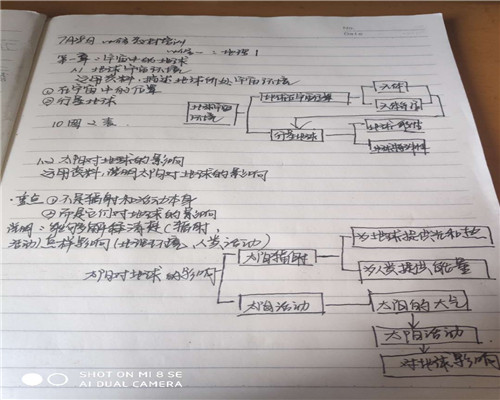 No.
Date
7月8日
地理1
第一章:宇宙中的地球
1.1 地球宇宙环境
运用资料,描述地球所处宇宙环境
①在宇宙中的位置
②行星地球
地球宇宙环境
地球在宇宙位置
天体
行星地球
10图2表
1.2 太阳对地球的影响
运用资料,说明太阳对地球的影响
·重点 ①不是辐射和活动本身
②而是它们对地球的影响
说明:
活动)怎样影响(地理环境、人类活动)
太阳对地球的影响
太阳辐射
为地球提供光和热
为人类提供能量
太阳活动
太阳的大气
太阳活动
对地球影响
SHOT ON MI 8 SE
AI DUAL CAMERA